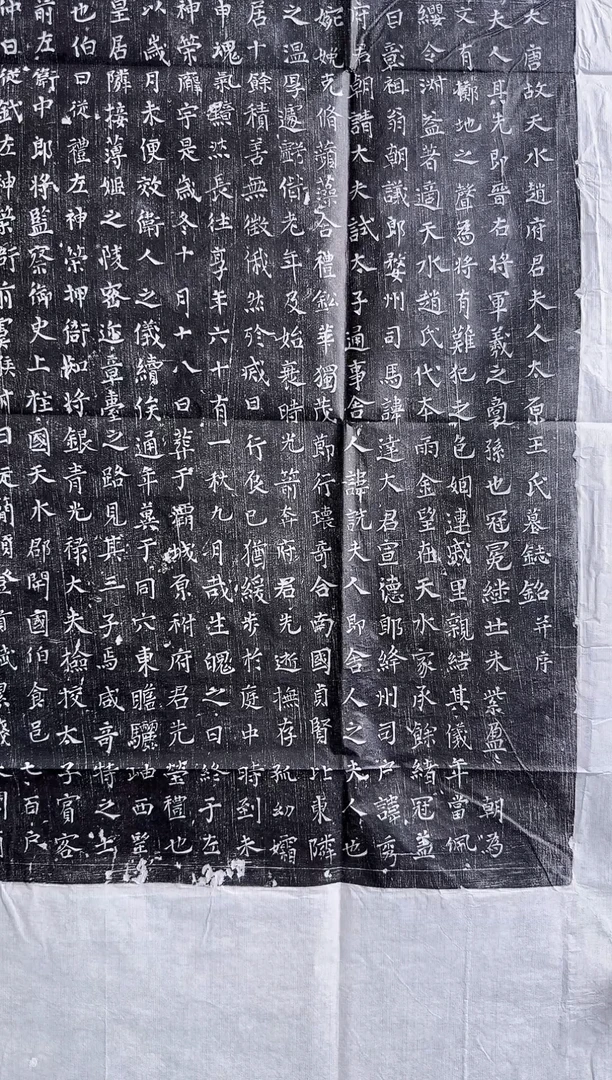 大唐故天水趙府君夫人太原王氏墓誌銘并序
夫人其先即晉右將軍羲之裔孫也冠冕繼世朱紫盈朝為
文有擲地之聲為將有難犯之色姻連戚里親結其儀年當佩
纓令淑益著適天水趙氏代本雨金望在天水家承餘緒冠蓋
自彰祖翁朝議郎婺州司馬諱達大君宣德郎絳州司戶諱秀
府君朝請大夫試太子通事舍人諱詵夫人即舍人之夫人也
婉娩克脩蘋藻合禮鈆華獨茂節行瓌奇合南國貞賢比東隣
之溫學遽虧偕老年及始衰時光箭奔府君先逝撫存孤幼孀
居十餘積善無徵俄然殄慼日行辰巳猶緩步於庭中時到未
申魂氣黯然長往享年六十有一秋九月哉生魄之日終于左
神策廨宇是歲冬十月十八日葬于霸城原祔府君先塋禮也
以歲月未便效衛人之儀續俟通年冀于同穴東瞻驪岫西望
皇居隣接薄姬之陵密迩章臺之路見其三子焉咸奇特之士
也伯曰從禮左神策押衙知將銀青光祿大夫檢校太子賓客
前左衛中郎將監察御史上柱國天水郡開國伯食邑七百戶
仲曰從鉞左神策